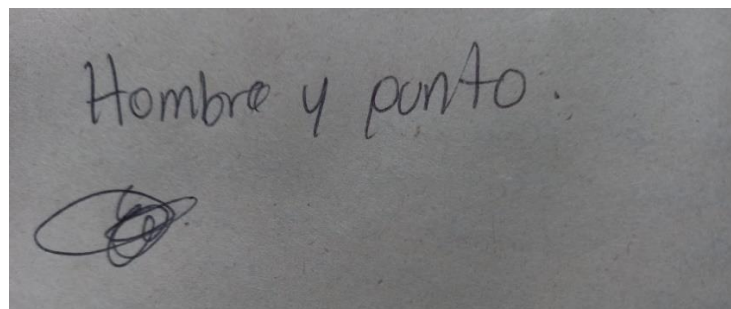 Hombre y punto.